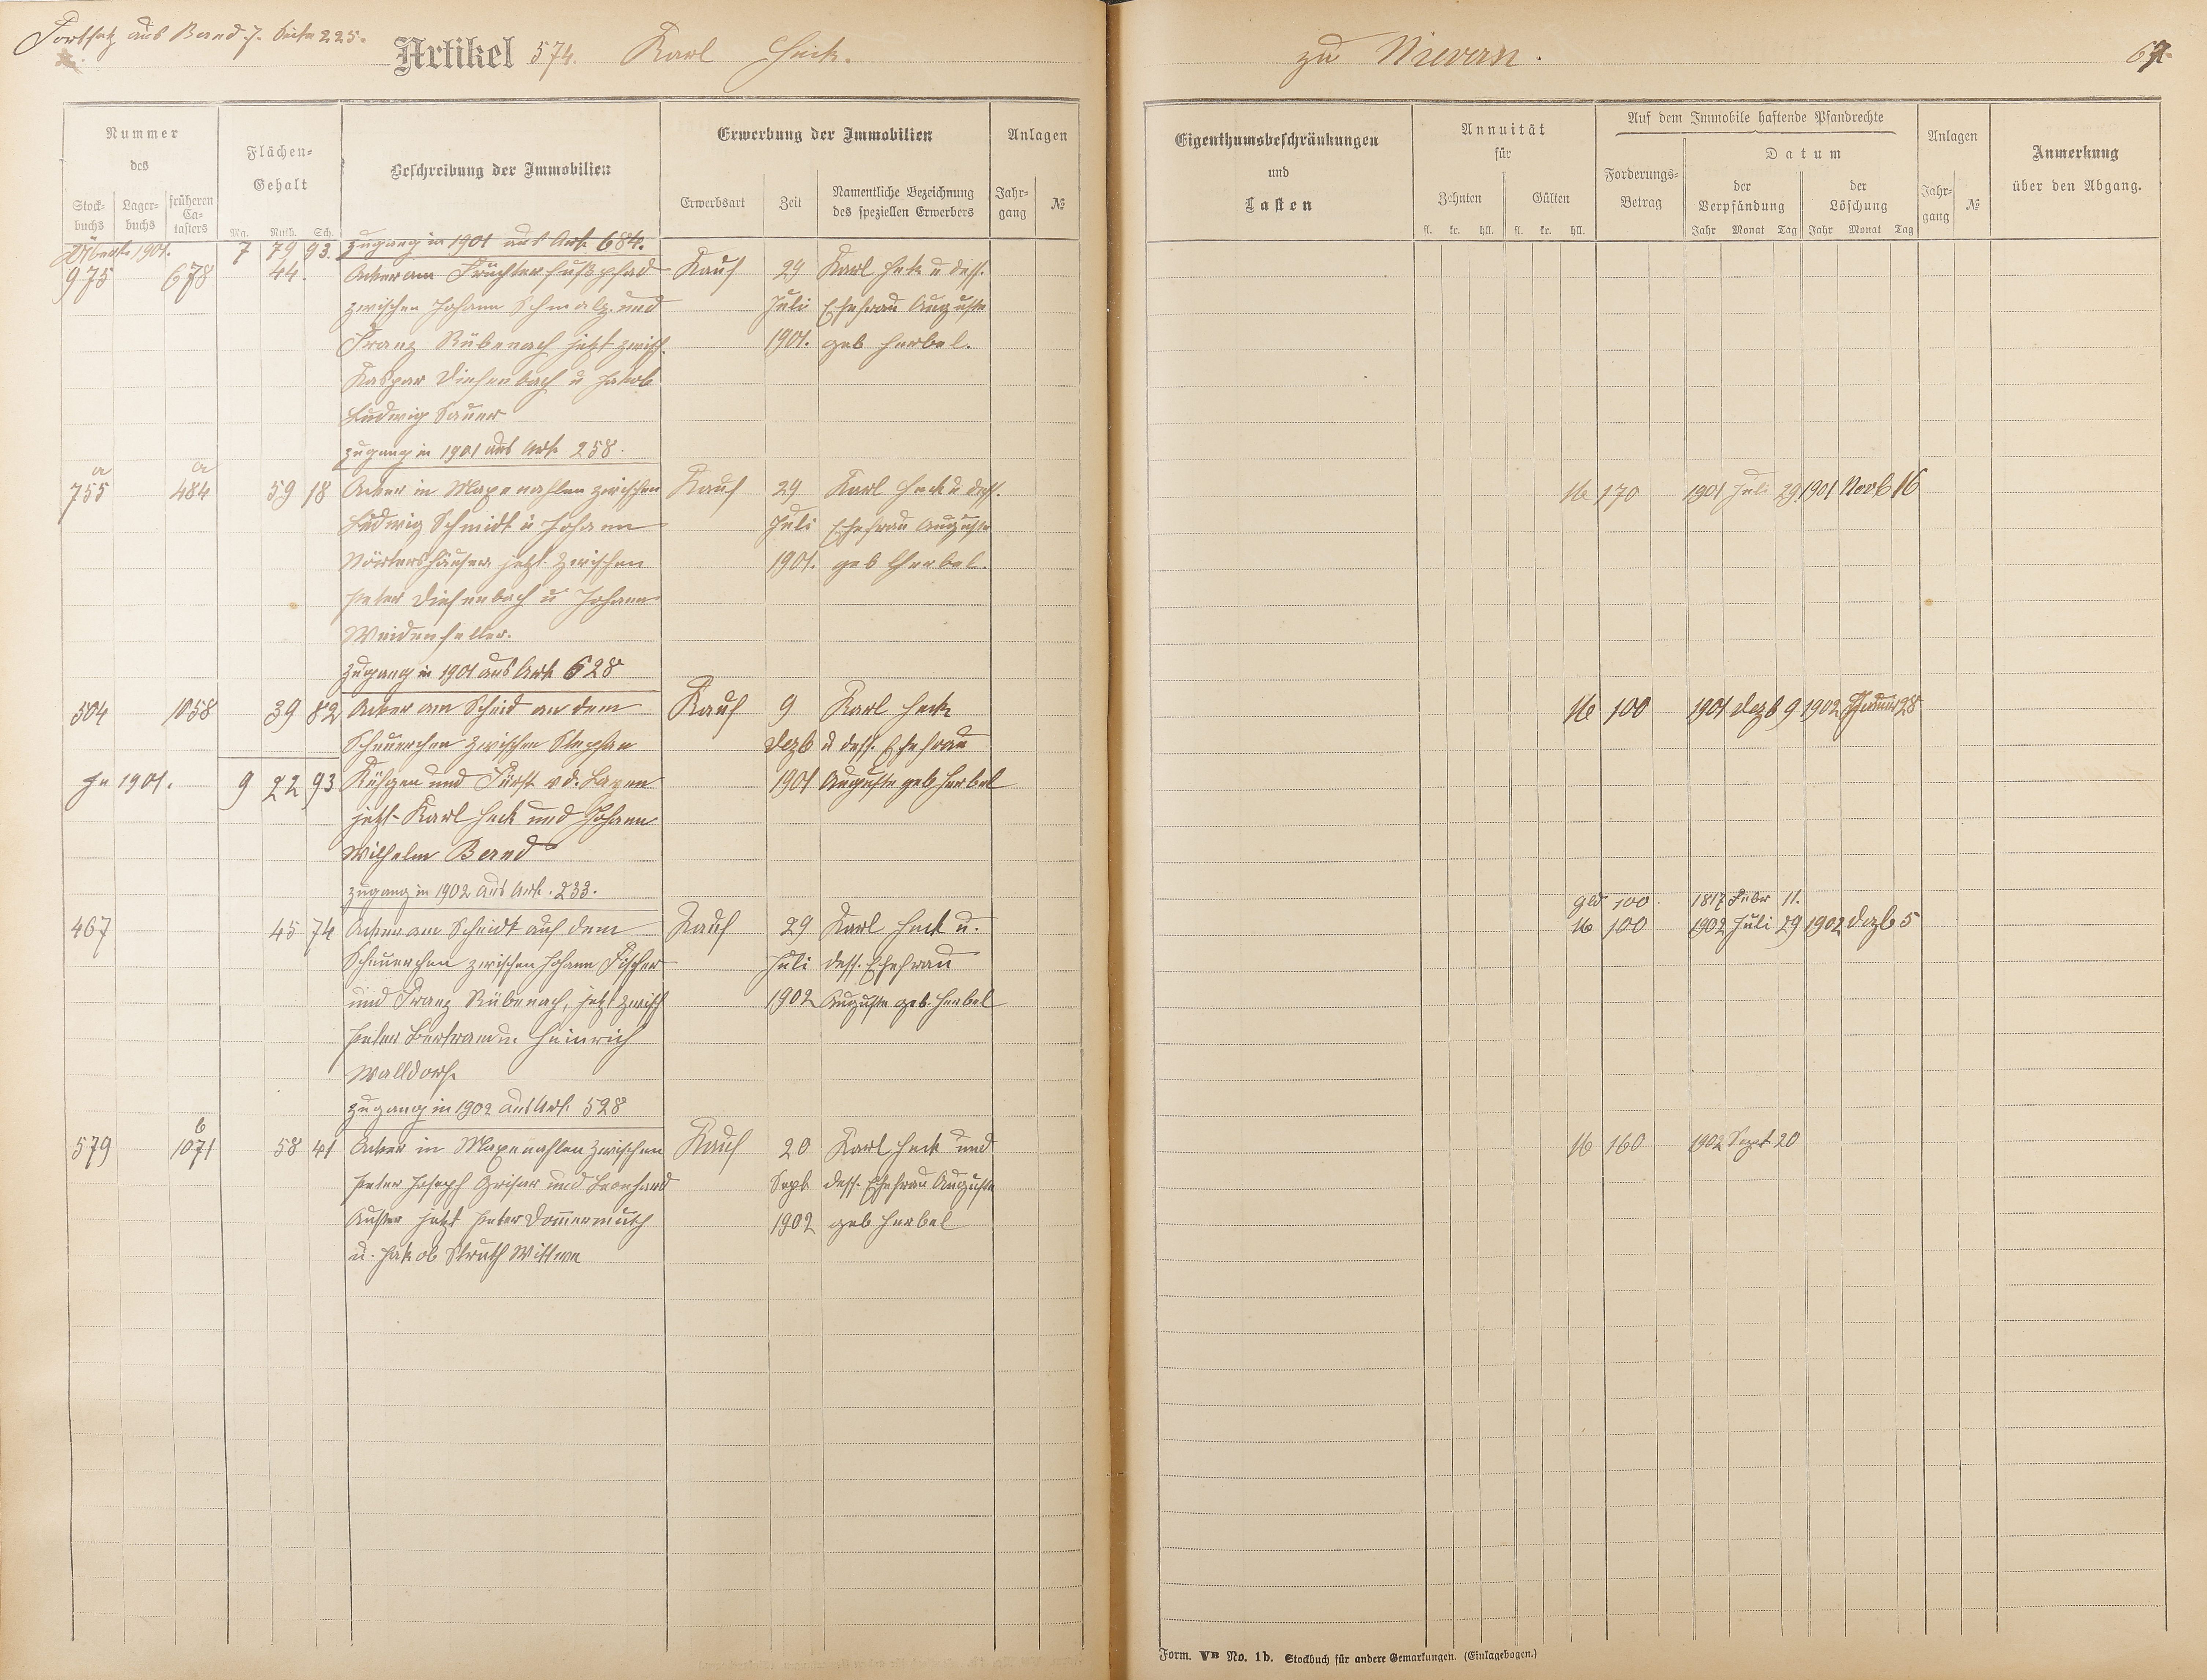 Fortsetz aus Band 7. Seite 225.
Artikel 574. Karl Heck.
Nummer
des
Stock-
buchs
Lager-
buchs
früheren
Ca-
tasters
Flächen-
Gehalt
Mg. Ruth. Sch.
Beschreibung der Immobilien
Erwerbung der Immobilien
Erwerbsart
Zeit
Namentliche Bezeichnung
des speziellen Erwerbers
Anlagen
Jahr-
gang
№
1901. 7 79 93. Zugang in 1901 aus Art. 684.
975 678 44. Acker am Früchter Fußpfad Kauf 29 Karl Heck u dess.
zwischen Johann Schmalz und Juli Ehefrau Auguste
Franz Rübenach jetzt zwisch. 1901. geb Herbel.
Kaspar Diefenbach u Jakob
Ludwig Sauer
Zugang in 1901 aus Art. 258.
a a
755 484 59 18 Acker in Maxenahlen zwischen Kauf 29 Karl Heck u dess.
Ludwig Schmidt u Johann Juli Ehefrau Auguste
Nörtershäuser jetzt zwischen 1901. geb Herbel.
Peter Diefenbach u Johann
Weidenfeller.
Zugang in 1901 aus Art. 628
504 1058 39 82 Acker am Scheid an dem Kauf 9 Karl Heck
Scheuerchen zwischen Stephan Dezb u dess. Ehefrau
In 1901. 9 22 93 und Fürst v d. Leyen 1901 Auguste geb Herbel
jetzt Karl Heck und Johann
Wilhelm Bernd
Zugang in 1902 aus Art. 233.
467 45 74 Acker am Scheidt auf dem Kauf 29 Karl Heck u.
Scheuerchen zwischen Johann Fischer Juli dess. Ehefrau
und Franz Rübenach, jetzt zwisch 1902 Auguste geb. Herbel
Peter Bertram u. Heinrich
Walldorf.
Zugang in 1902 aus Art. 528
b
579 1071 58 41 Acker in Maxenahlen zwischen Kauf 20 Karl Heck und
Peter Joseph Grisar und Leonhard Sept dess. Ehefrau Auguste
jetzt Peter Dommermuth 1902 geb Herbel
u. Jakob Struth Wittwe
zu Nievern.
67.
Eigenthumsbeschränkungen
und
Lasten
Annuität
für
Zehnten
Gülten
fl. kr. hll. fl. kr. hll.
Auf dem Immobile haftende Pfandrechte
Forderungs-
Betrag
Datum
der
Verpfändung
der
Löschung
Jahr Monat Tag Jahr Monat Tag
Anlagen
Jahr-
gang
№
Anmerkung
über den Abgang.
M 170 1901 Juli 29 1901 Novb 16
M 100 1901 Dezb 9 1902 28
Gld 100. 1817 Febr 11.
M 100 1902 Juli 29 1902 Dezb 5
M 160 1902 Sept 20
Form. VB No. 1b. Stockbuch für andere Gemarkungen. (Einlagebogen.)